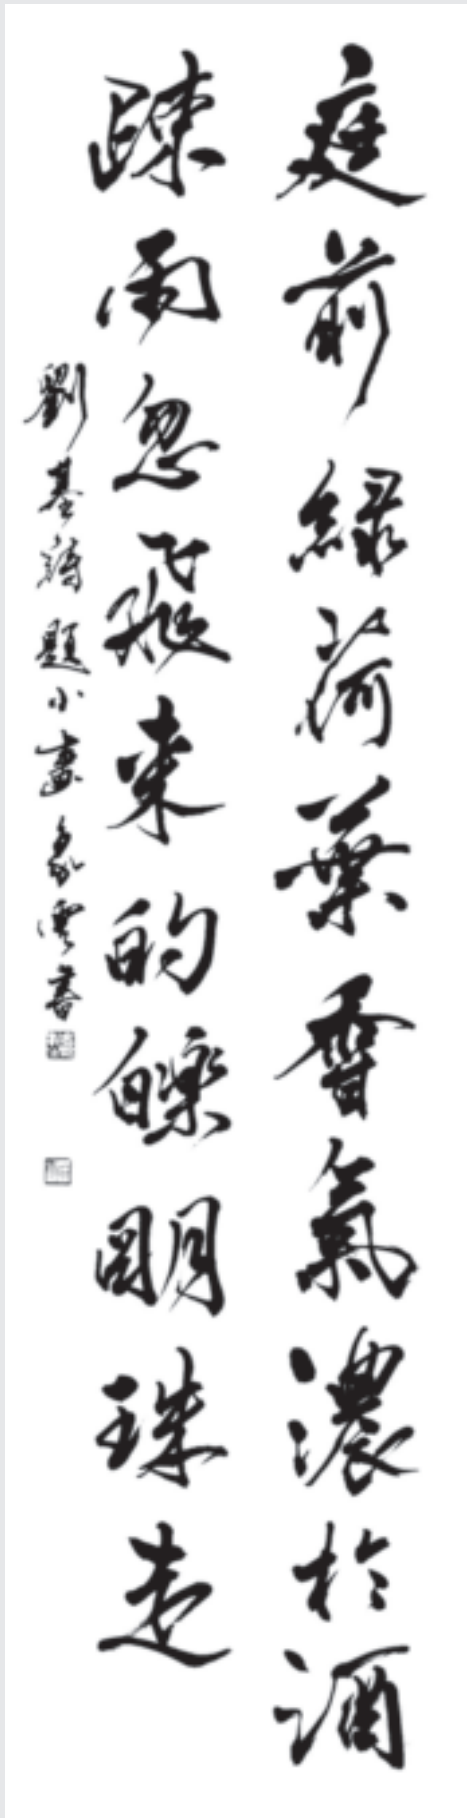 庭前緑荷葉香氣濃於酒
疎雨忽飛来的皪明珠走
劉基詩題小畫雲書